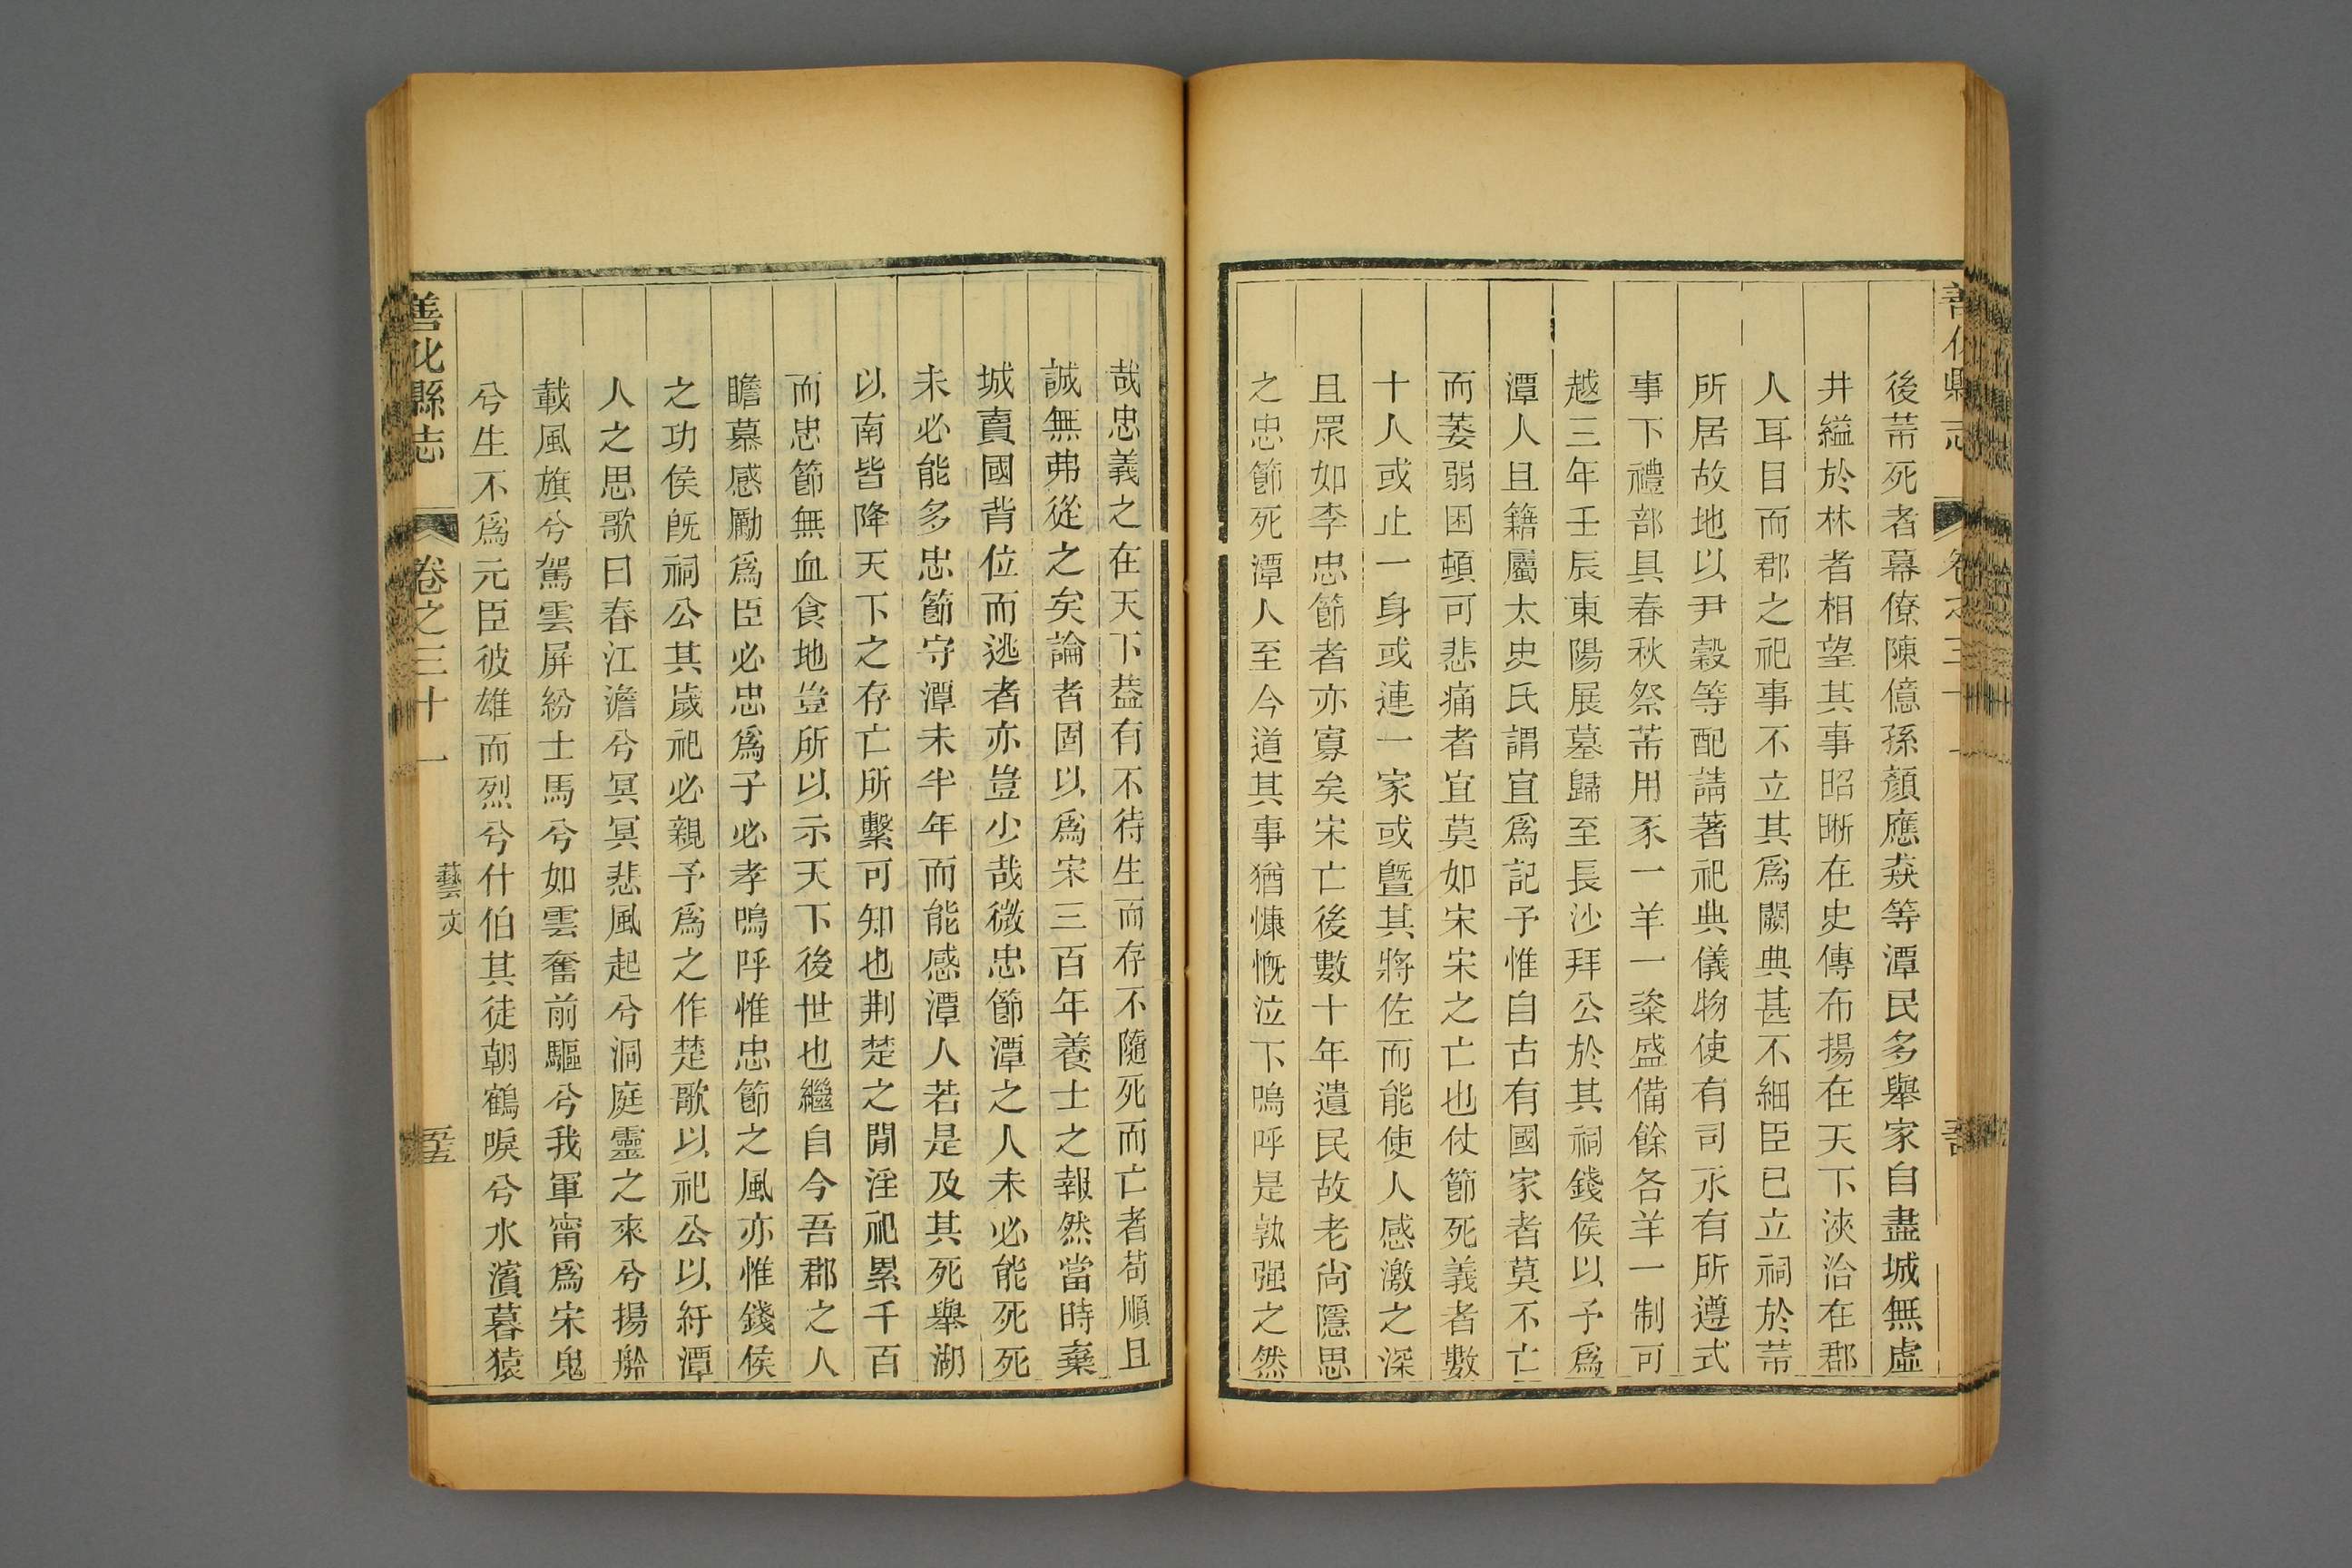 後芾死者幕僚陳億孫顏應焱等潭民多舉家自盡城無虛
井縊於林者相望其事昭晰在史傳布揚在天下浹洽在郡
人耳目而郡之祀事不立其爲闕典甚不細臣已立祠於芾
所居故地以尹穀等配請著祀典儀物使有司永有所遵式
事下禮部具春秋祭芾用豕一羊一粢盛備餘各羊一制可
越三年壬辰東陽展墓歸至長沙拜公於其祠錢侯以予爲
潭人且籍屬太史氏謂宜爲記予惟自古有國家者莫不亡
而萎弱困頓可悲痛者宜莫如宋宋之亡也仗節死義者數
十人或止一身或連一家或曁其將佐而能使人感激之深
且眾如李忠節者亦寡矣宋亡後數十年遺民故老尙隱思
之忠節死潭人至今道其事猶慷慨泣下嗚呼是孰强之然
哉忠義之在天下葢有不待生而存不隨死而亡者苟順且
誠無弗從之矣論者固以爲宋三百年養士之報然當時棄
城賣國背位而逃者亦豈少哉微忠節潭之人未必能死死
未必能多忠節守潭未半年而能感潭人若是及其死舉湖
以南皆降天下之存亡所繫可知也荆楚之閒淫祀累千百
而忠節無血食地豈所以示天下後世也繼自今吾郡之人
瞻慕感勵爲臣必忠爲子必孝嗚呼惟忠節之風亦惟錢侯
之功侯旣祠公其歲祀必親予爲之作楚歌以祀公以紓潭
人之思歌曰春江澹兮冥冥悲風起兮洞庭靈之來兮揚舲
載風旗兮駕雲屏紛士馬兮如雲奮前驅兮我軍甯爲宋鬼
兮生不爲元臣彼雄而烈兮什伯其徒朝鶴唳兮水濱暮猿
善化縣志
卷之三十一
藝文
五五